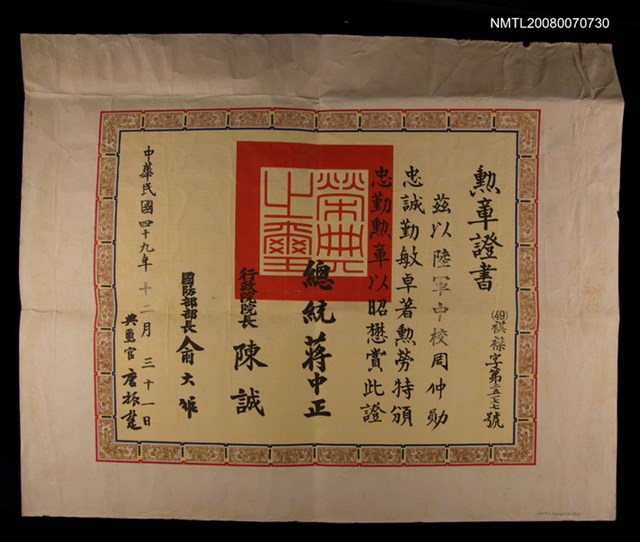 NMTL20080070730
勲章證書
(49)祺祿字第三五七七號
茲以陸軍中校周仲勛
忠誠勤敏卓著勲勞特頒
忠勤勲章以昭懋賞此證
榮典之璽
總統 蔣中正
行政院院長 陳誠
國防部部長 俞大維
中華民國四十九年十二月三十一日
典璽官